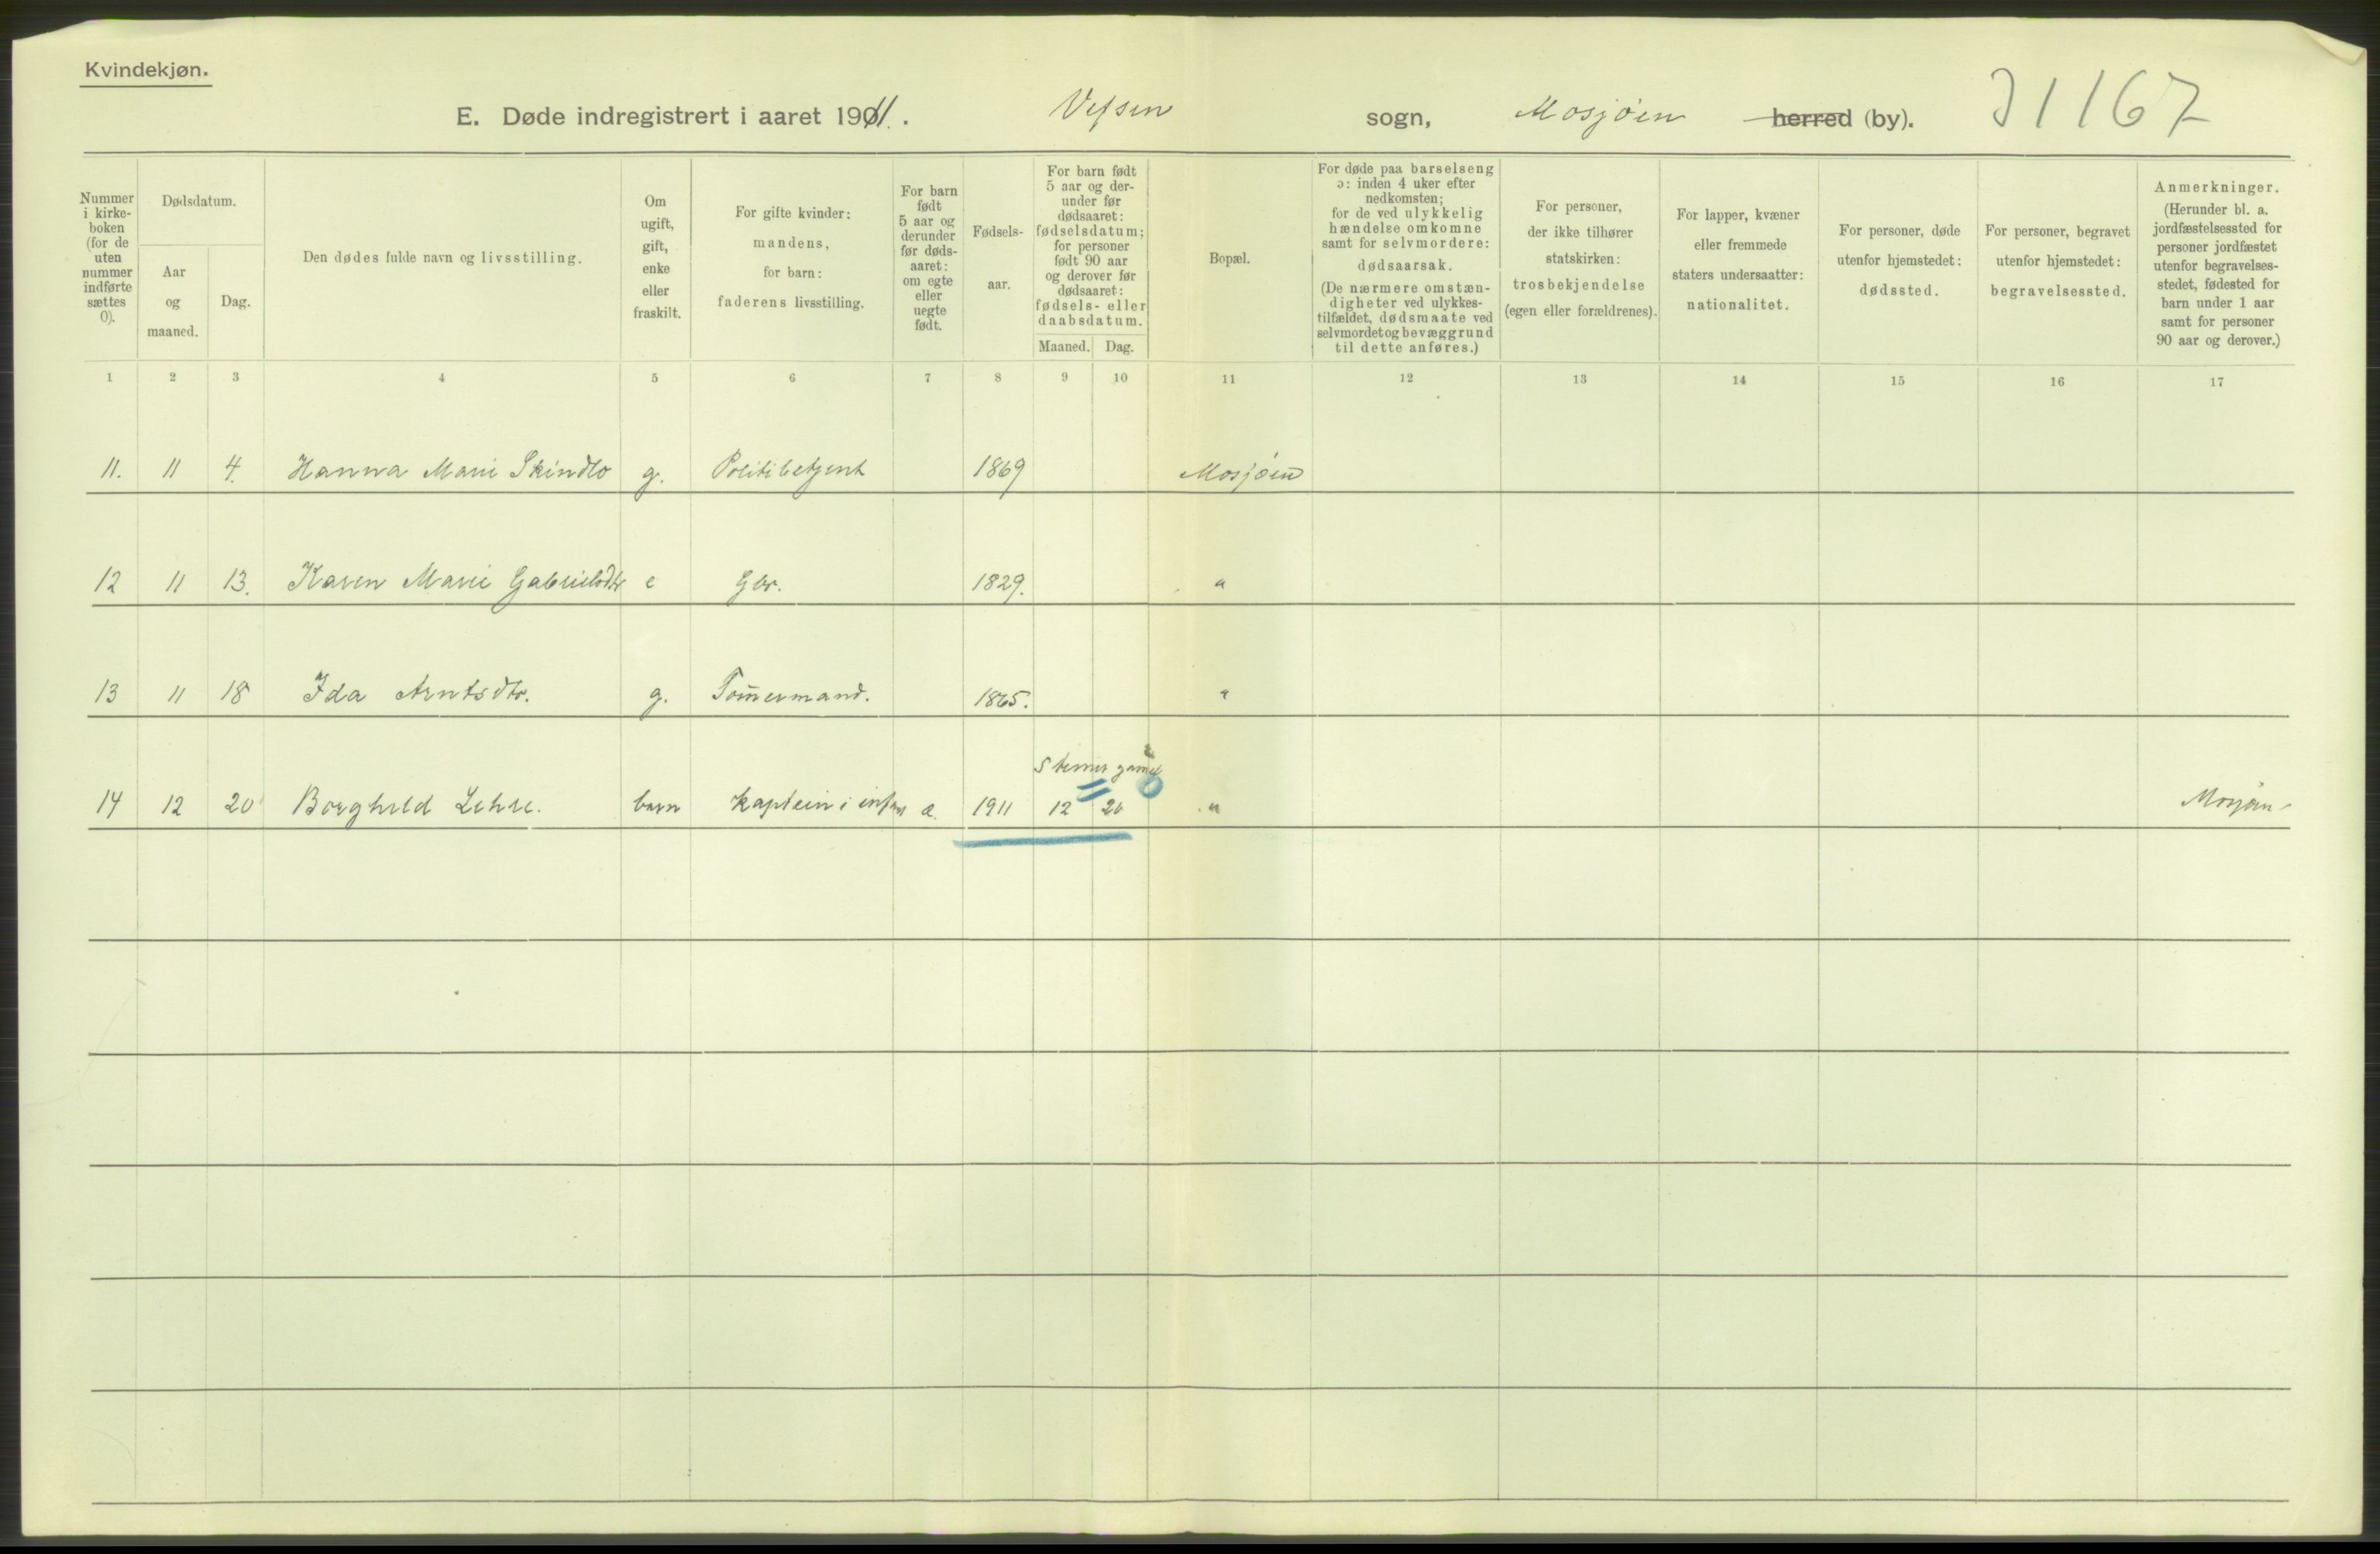 Kvindekjøn.
E. Døde indregistrert i aaret 1911. Vefsen sogn, Mosjøen herred (by). J1167
Nummer i kirke-boken (for de uten nummer indførte sættes 0).
Dødsdatum.
Aar og maaned.
Dag.
Den dødes fulde navn og livsstilling.
Om ugift, gift, enke eller fraskilt.
For gifte kvinder: mandens, for barn: faderens livsstilling.
For barn født 5 aar og derunder før døds-aaret: om egte eller uegte født.
Fødsels-aar.
For barn født 5 aar og der-under før dødsaaret: fødselsdatum; for personer født 90 aar og derover før dødsaaret: fødsels- eller daabsdatum.
Maaned. Dag.
Bopæl.
For døde paa barselseng ɔ: inden 4 uker efter nedkomsten; for de ved ulykkelig hændelse omkomne samt for selvmordere: dødsaarsak. (De nærmere omstæn-digheter ved ulykkes-tilfældet, dødsmaate ved selvmordet og bevæggrund til dette anføres.)
For personer, der ikke tilhører statskirken: trosbekjendelse (egen eller forældrenes).
For lapper, kvæner eller fremmede staters undersaatter: nationalitet.
For personer, døde utenfor hjemstedet: dødssted.
For personer, begravet utenfor hjemstedet: begravelsessted.
Anmerkninger. (Herunder bl. a. jordfæstelsessted for personer jordfæstet utenfor begravelses-stedet, fødested for barn under 1 aar samt for personer 90 aar og derover.)
1 2 3 4 5 6 7 8 9 10 11 12 13 14 15 16 17
11. 11 4. Hanna Marie Skindlo g. Politibetjent 1869 Mosjøen
12 11 13. Karen Marie Gabrielsdtr e Gbr. 1829. "
13 11 18 Ida Arntsdtr. g. Tom̅ermand. 1865. "
5 timer gammel
14 12 20 Borghild Lehre. barn Kaptein i infan æ. 1911 12 20 " Mosjøen